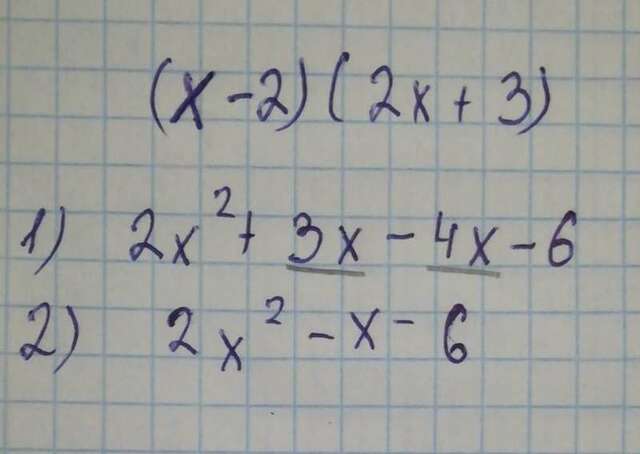 (x-2)(2x+3)
1) 2x²+3x-4x-6
2) 2x²-x-6